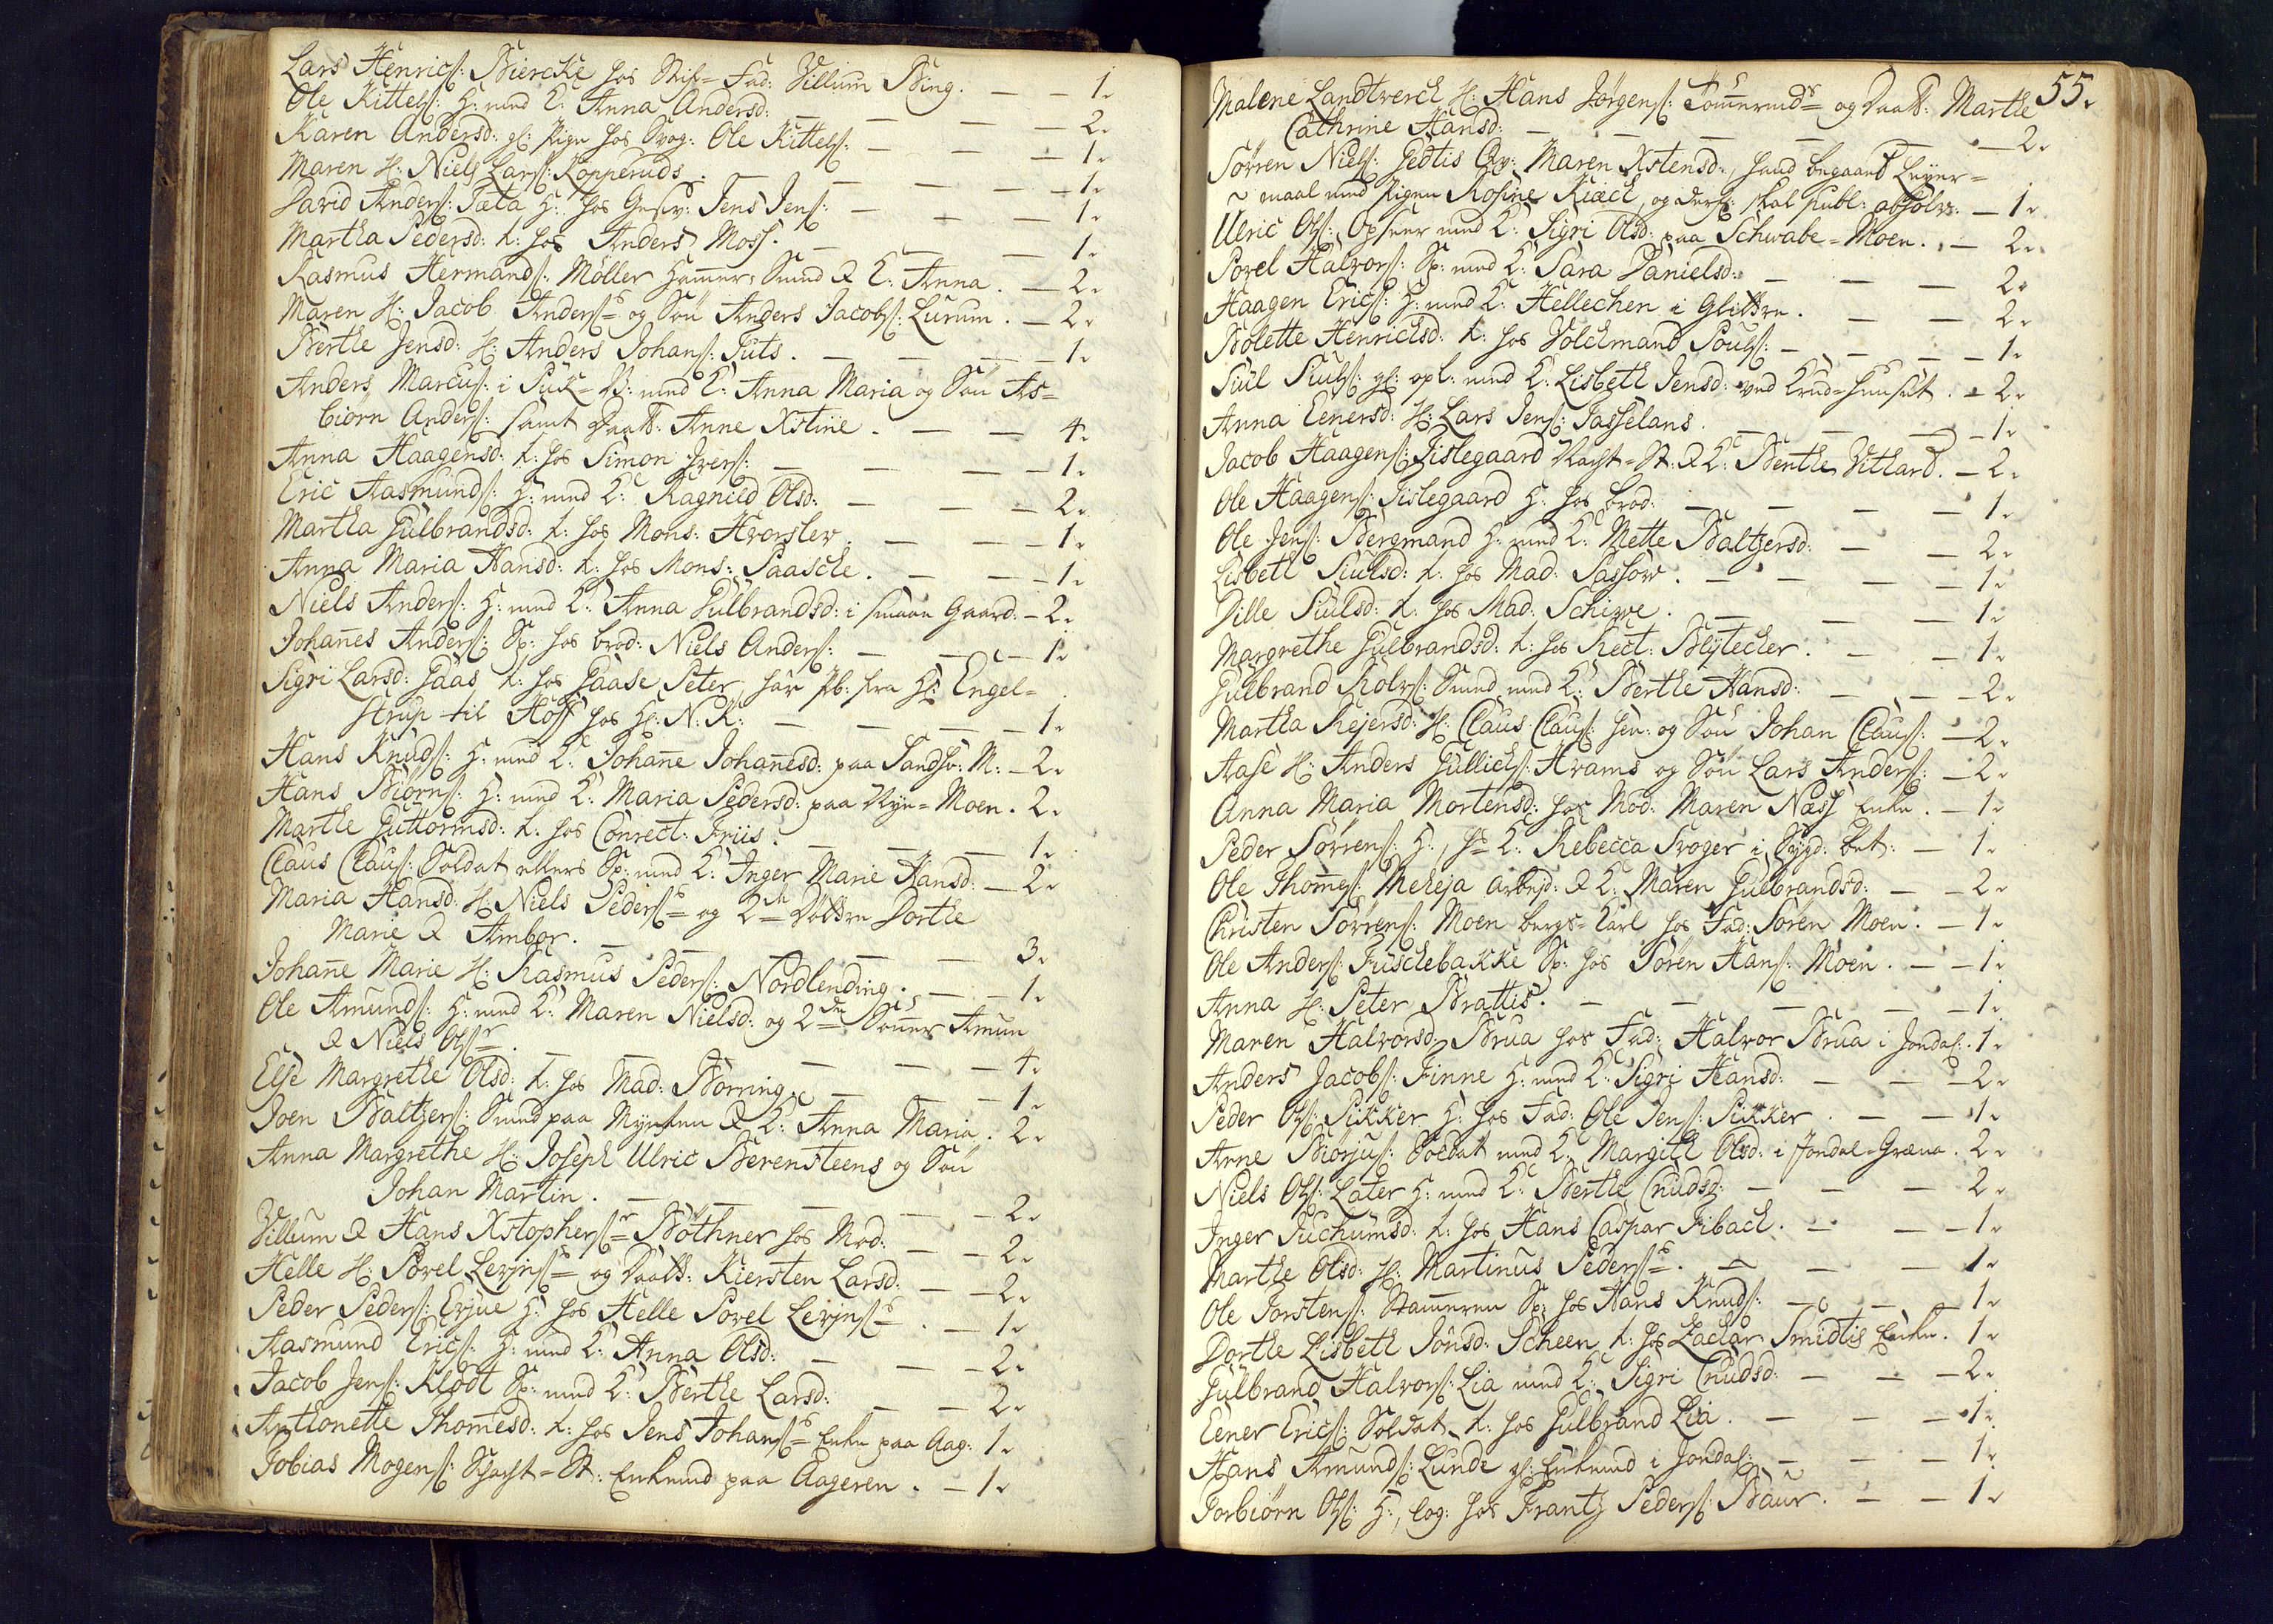 Lars Henrics: Biercke hos Stif-Fad: Villum Bing. — — 1.
Ole Kittels: H: med K: Anna Andersd: — — — 2.
Karen Andersd: gl: Pige hos Svog: Ole Kittels: — — — 1.
Maren H: Niels Lars: Kopperuds. — — — 1.
David Anders: Tæta H: hos Jens Jens: — — 1.
Martha Pedersd: t: hos Anders Moss. — — — 1.
Rasmus Hermands: Möller Hamer-Smed & K: Anna. — 2.
Maren H: Jacob Anders: og Sön Anders Jacobs: Lurum. — 2.
Berthe Jensd: H: Anders Johans: Juts. — — — 1.
Anders Marcus: i med K: Anna Maria og Sön As-
biörn Anders: samt Daatt: Anne Xstine. — — 4.
Anna Haagensd: t: hos Simon Ivers: — — — 1.
Eric Aasmunds: H: med K: Ragnild Olsd: — — — 2.
Martha Gulbrandsd: t: hos Mons: Hvorslev. — — 1.
Anna Maria Hansd: t: hos Mons: Paasche. — — 1.
Niels Anders: H: med K: Anna Gulbrandsd: i Smaae Gaard: — 2.
Johanes Anders: Sp: hos brod: Niels Anders: — — 1.
Sigri Larsd: Gaas t: hos Gaase Peter, har fra Hr: Engel-
strup til Hoff hos Hr: N: K: — — — 1.
Hans Knuds: H: med K: Johane Johanesd: paa Sandsv: M: — 2.
Hans Biörns: H: med K: Maria Pedersd: paa Nye-Moen. 2.
Marthe Guttormsd: t: hos Conrect: Friis. — — — 1.
Claus Claus: Soldat ellers Sp: med K: Inger Marie Hansd: — 2.
Maria Hansd: H: Niels Peders: og 2de Döttre Dorthe
Marie & Ambor. — — — 3.
Johane Marie H: Rasmus Peders: Nordlending. — — 1.
Ole Amunds: H: med K: Maren Nielsd: og 2de Sönner Amun
& Niels Ols: — — — 4.
Else Margrethe Olsd: t: hos Mad: Borring. — — 1.
Joen Baltzers: Smed paa Mynten & K: Anna Maria. 2.
Anna Margrethe H: Joseph Ulric Berensteens og Sön
Johan Martin. — — — 2.
Villum & Hans Xstophers: Böthner hos Mod: — — 2.
Helle H: Povel Levjns: og Daatt: Kiersten Larsd: — — 2.
Peder Peders: Erjue H: hos Helle Povel Levjns: — 1.
Aasmund Erics: H: med K: Anna Olsd: — — — 2.
Jacob Jens: Klödt Sp: med K: Berthe Larsd: — — 2.
Anthonette Thomesd: t: hos Jens Johans: Enke paa Aag: 1.
Tobias Mogens: Schacht-St: Enkemd paa Aageren. — 1.
55.
Malene Landtverck H: Hans Jörgens: Tömeruds og Daatt: Marthe
Cathrine Hansd: — — — 2.
Sörren Niels: Gedtis Qv: Maren Xstensd:, hand begaaed Leyer-
maal med Pigen Rosine Kiæck, og derfor skal publ: absolv: — 1.
Ulric Ols: Opseer med K: Sigri Olsd: paa Schwabe-Moen. — 2.
Povel Halvors: Sp: med K: Sara Danielsd: — — 2.
Haagen Erics: H: med K: Hellechen i Glittre. — — 2.
Bolette Henrichsd: t: hos Volckmand Pouls: — — — 1.
Siul Siuls: gl: opl: med K: Lisbeth Jensd: ved Krud-Huuset. — 2.
Anna Eenersd: H: Lars Jens: Jasselans. — — — 1.
Jacob Haagens: Fislegaard Nacht-St: & K: Benthe Vithard. — 2.
Ole Haagens: Fislegaard H: hos brod: — — — 1.
Ole Jens: Bergmand H: med K: Mette Baltzersd: — — 2.
Lisbeth Siulsd: t: hos Mad: Passow. — — — 1.
Dille Siulsd: t: hos Mad: Schive. — — — 1.
Margrethe Gulbrandsd: t: hos Rect: Blytecker. — — 1.
Gulbrand Rolvs: Smed med K: Berthe Hansd: — — 2.
Martha Rejersd: H: Claus Claus: sen: og Sön Johan Claus: — 2.
Aase H: Anders Gullichs: Hvams og Sön Lars Anders: — 2.
Anna Maria Mortensd: hos Mod: Maren Næss Enke. — 1.
Peder Sörrens: H:, hs K: Rebecca Troger i Sygd: bet: — 1.
Ole Thomes: Meheja arbejd: & K: Maren Gulbrandsd: — — 2.
Christen Sörrens: Moen bergs-Karl hos Fad: Sören Moen. — 1.
Ole Anders: Fuschebakke Sp: hos Sören Hans: Moen. — — 1.
Anna H: Peter Brattis. — — — 1.
Maren Halvorsd: Brua hos Fad: Halvor Brua i Jondal: 1.
Anders Jacobs: Finne H: med K: Sigri Hansd: — — 2.
Peder Ols: Pikker H: hos Fad: Ole Jens: Pikker. — — 1.
Arne Biörjus: Soldat med K: Margith Olsd: i Jondal-Græna. 2.
Niels Ols: Later H: med K: Berthe Cnudsd: — — 2.
Inger Juchumsd: t: hos Hans Caspar Fiback. — — 1.
Marthe Olsd: H: Martinus Peders: — — — 1.
Ole Torstens: Stameren Sp: hos Hans Knuds: — — — 1.
Dorthe Lisbeth Jonsd: Scheen t: hos Zachar Smidtis Enke. 1.
Gulbrand Halvors: Lia med K: Sigri Cnudsd: — — 2.
Eener Erics: Soldat t: hos Gulbrand Lia. — — — 1.
Hans Amunds: Lunde gl: Enkemd i Jondal: — — 1.
Torbiörn Ols: H:, log: hos Frantz Peders: Baur. — — 1.